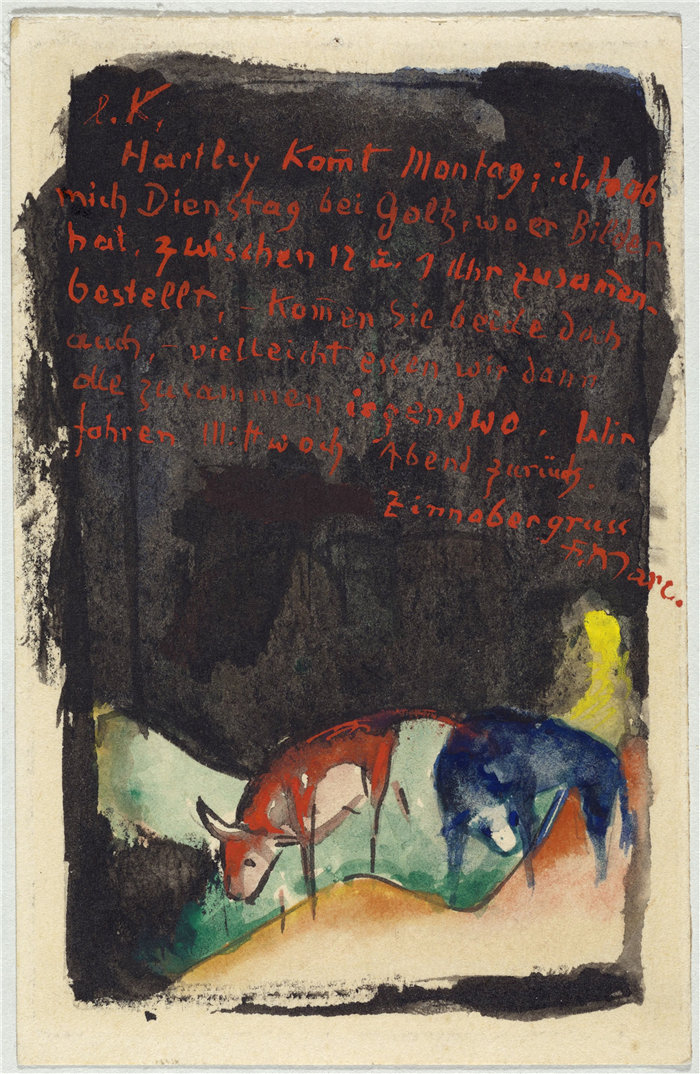 l. K,
Hartley kom̄t Montag; ich hab
mich Dienstag bei Goltz, wo er Bilder
hat, zwischen 12 u. 1 Uhr zusam̄en-
bestellt, – Kom̄en Sie beide doch
auch, – vielleicht essen wir dann
alle zusammen irgendwo. Wir
fahren Mittwoch Abend zurück.
Zinnobergruss
F. Marc.